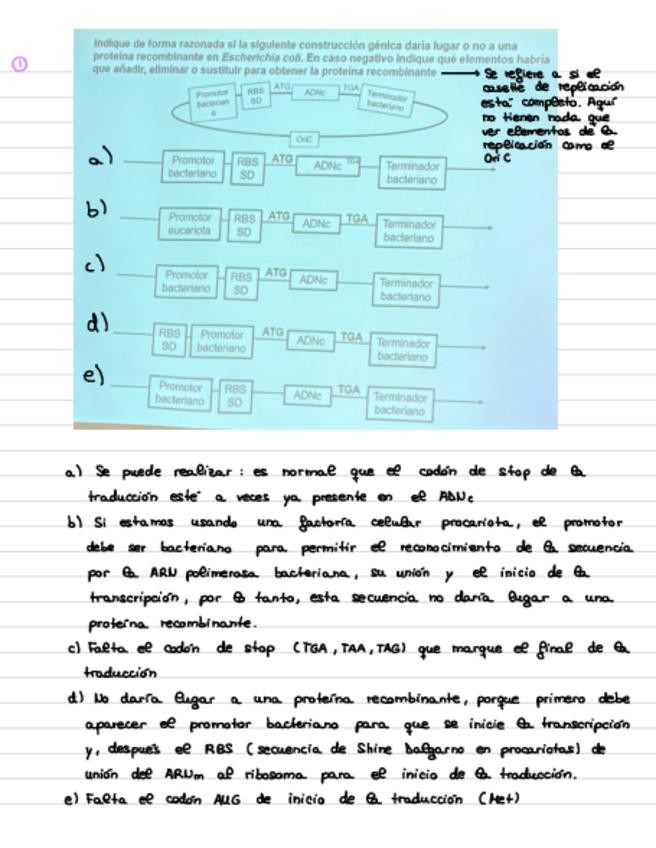 ①
Indique de forma razonada si la siguiente construcción génica daría lugar o no a una
proteína recombinante en Escherichia coli. En caso negativo indique qué elementos habría
que añadir, eliminar o sustituir para obtener la proteína recombinante
Se refiere a si el
casette de replicación
está completo. Aquí
no tienen nada que
ver elementos de la
replicación como el
OriC
Promotor bacteriano RBS SD ATG ADNc TGA Terminador bacteriano
OriC
a) Promotor bacteriano RBS SD ATG ADNc TGA Terminador bacteriano
b) Promotor eucariota RBS SD ATG ADNc TGA Terminador bacteriano
c) Promotor bacteriano RBS SD ATG ADNc Terminador bacteriano
d) RBS SD Promotor bacteriano ATG ADNc TGA Terminador bacteriano
e) Promotor bacteriano RBS SD ADNc TGA Terminador bacteriano
a) Se puede realizar : es normal que el codón de stop de la
traducción esté a veces ya presente en el ADNc
b) Si estamos usando una factoría celular procariota, el promotor
debe ser bacteriano para permitir el reconocimiento de la secuencia
por la ARN polimerasa bacteriana, su unión y el inicio de la
transcripción, por lo tanto, esta secuencia no daría lugar a una
proteína recombinante.
c) Falta el codón de stop (TGA, TAA, TAG) que marque el final de la
traducción
d) No daría lugar a una proteína recombinante, porque primero debe
aparecer el promotor bacteriano para que se inicie la transcripción
y, después el RBS (secuencia de Shine Dalgarno en procariotas) de
unión del ARNm al ribosoma para el inicio de la traducción.
e) Falta el codón AUG de inicio de la traducción (Met)